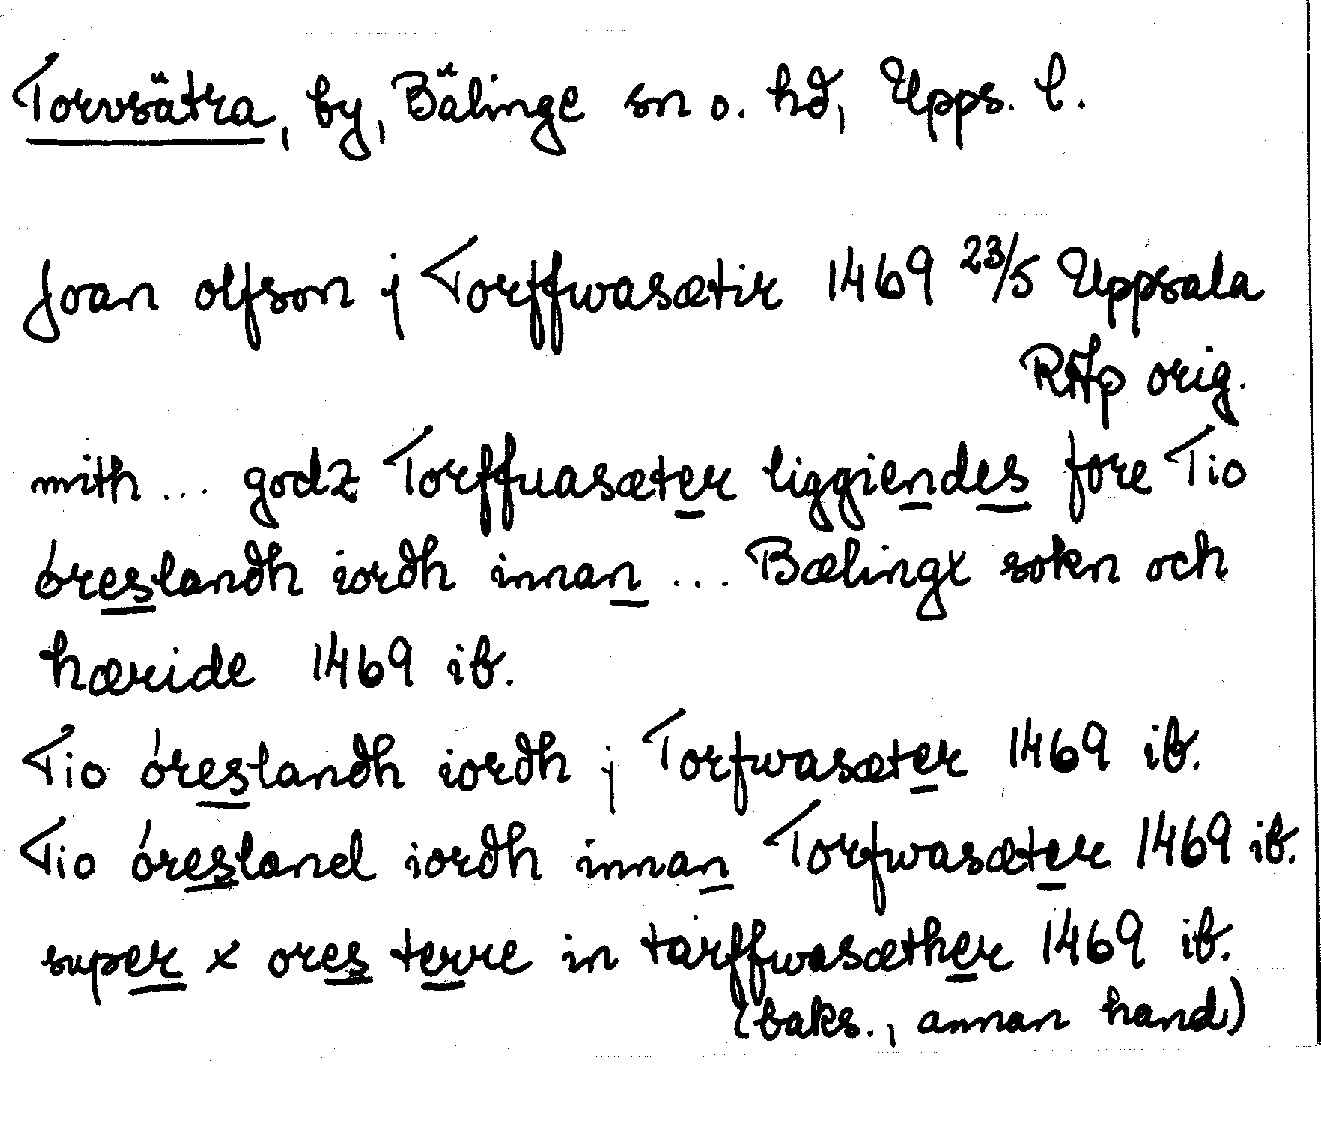 Torvsätra, by, Bälinge sn o. hd, Upps. l.
Joan olfson j Torffwasætir 1469 23/5 Uppsala
RAp orig.
mith ... godz Torffuasæter liggiendes fore Tio
óreslandh iordh innan ... Bælingx sokn och
hæride 1469 ib.
Tio óreslandh iordh j Torfwasæter 1469 ib.
Tio óresland iordh innan Torfwasæter 1469 ib.
super x ores terre in tarffwasæther 1469 ib.
(baks., annan hand)